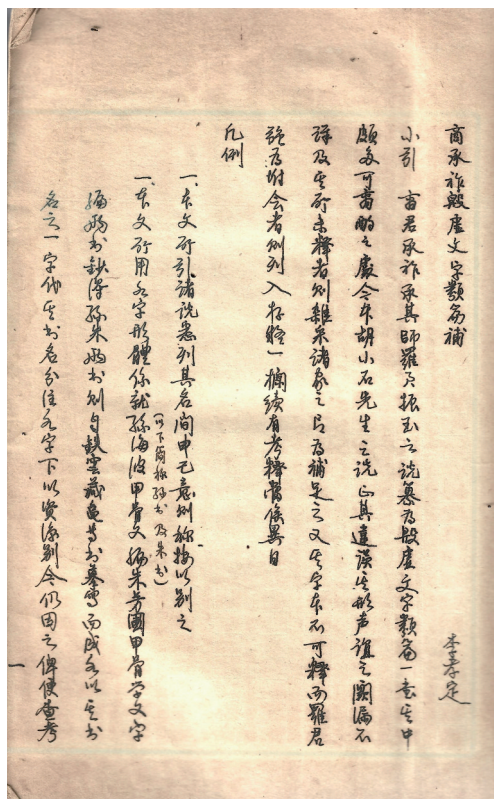 商承祚殷虛文字類編補
李孝定
小引　商君承祚承其師羅氏振玉之說纂為殷虛文字類編一書其中
頗多可商酌之處今本胡小石先生之說正其違誤其形声誼之闕漏不
詳及其所未釋者則雜采諸家之言為補足之又其字本不可釋而羅君
強為坿會者則列入存疑一欄續有考釋當俟異日
凡例
一、本文所引諸說悉列其名間申己意則称按以別之
一、本文所用各字形體係就孫海波甲骨文編朱芳圃甲骨学文字
（以下簡称孫書及朱書）
編兩書鈔得孫朱兩書則自鉄雲藏龜等書摹寫而成各以其書
名之一字代其書名分注各字下以資識別今仍因之俾便查考
一